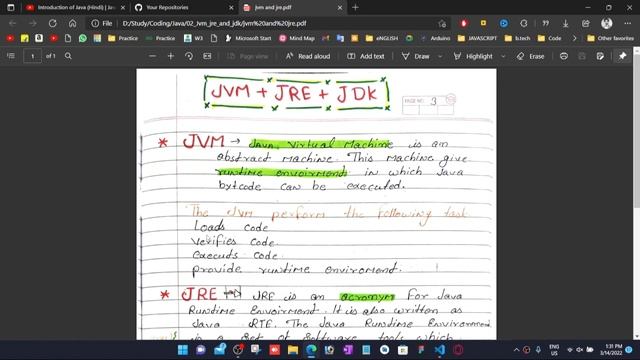 Introduction of Java (Hindi) | Ja
Your Repositories
jvm and jre.pdf
File
D:/Study/Coding/Java/02_Jvm_jre_and_jdk/jvm%20and%20jre.pdf
Practice
W3School
Mind Set
eNGLISH
JAVASCRIPT
b.tech
Other favorites
1
of 1
JVM + JRE + JDK
PAGE NO. 3
* JVM → Java Virtual Machine is an
abstract machine. This machine give
runtime envoirment in which Java
bytcode can be executed.
The JVM perform the following task
Loads code
Verifies code
executs code
provide runtime enviroment.
* JRE → JRE is an acronym for Java
Runtime Envoirment. It is also written as
Java RTE. The Java Runtime Environment
is a set of software tools which
ENG
US
1:31 PM
5/14/2022